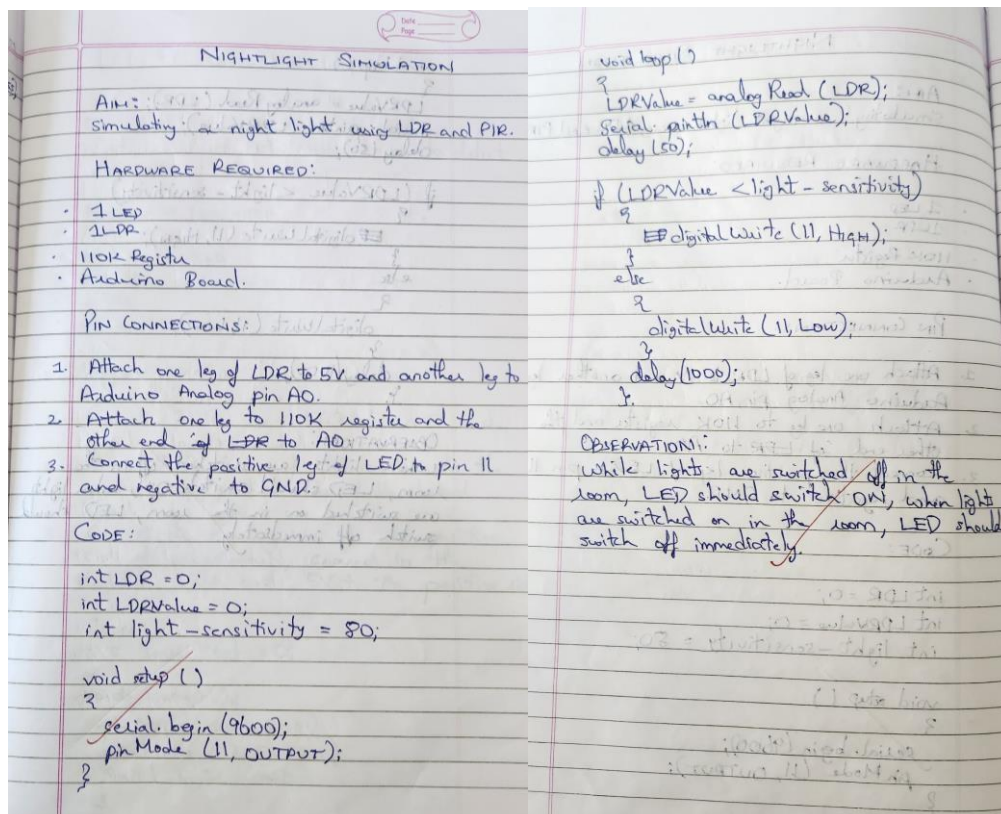 Date
Page
NIGHTLIGHT SIMULATION
AIM:
Simulating a night light using LDR and PIR.
HARDWARE REQUIRED:
· 1 LED
· 1 LDR
· 110K Register
· Arduino Board.
PIN CONNECTIONS:
1. Attach one leg of LDR to 5V and another leg to
Arduino Analog pin A0.
2. Attach one leg to 110K register and the
other end of LDR to A0
3. Connect the positive leg of LED to pin 11
and negative to GND.
CODE:
int LDR = 0;
int LDRValue = 0;
int light-sensitivity = 80;
void setup ()
{
serial.begin (9600);
pinMode (11, OUTPUT);
}
void loop ()
{
LDRValue = analog Read (LDR);
Serial.println (LDRValue);
delay (50);
if (LDRValue < light-sensitivity)
{
digitalWrite (11, HIGH);
}
else
{
digitalWrite (11, Low);
}
delay (1000);
}.
OBSERVATION:
While lights are switched off in the
room, LED should switch ON, when lights
are switched on in the room, LED should
switch off immediately.